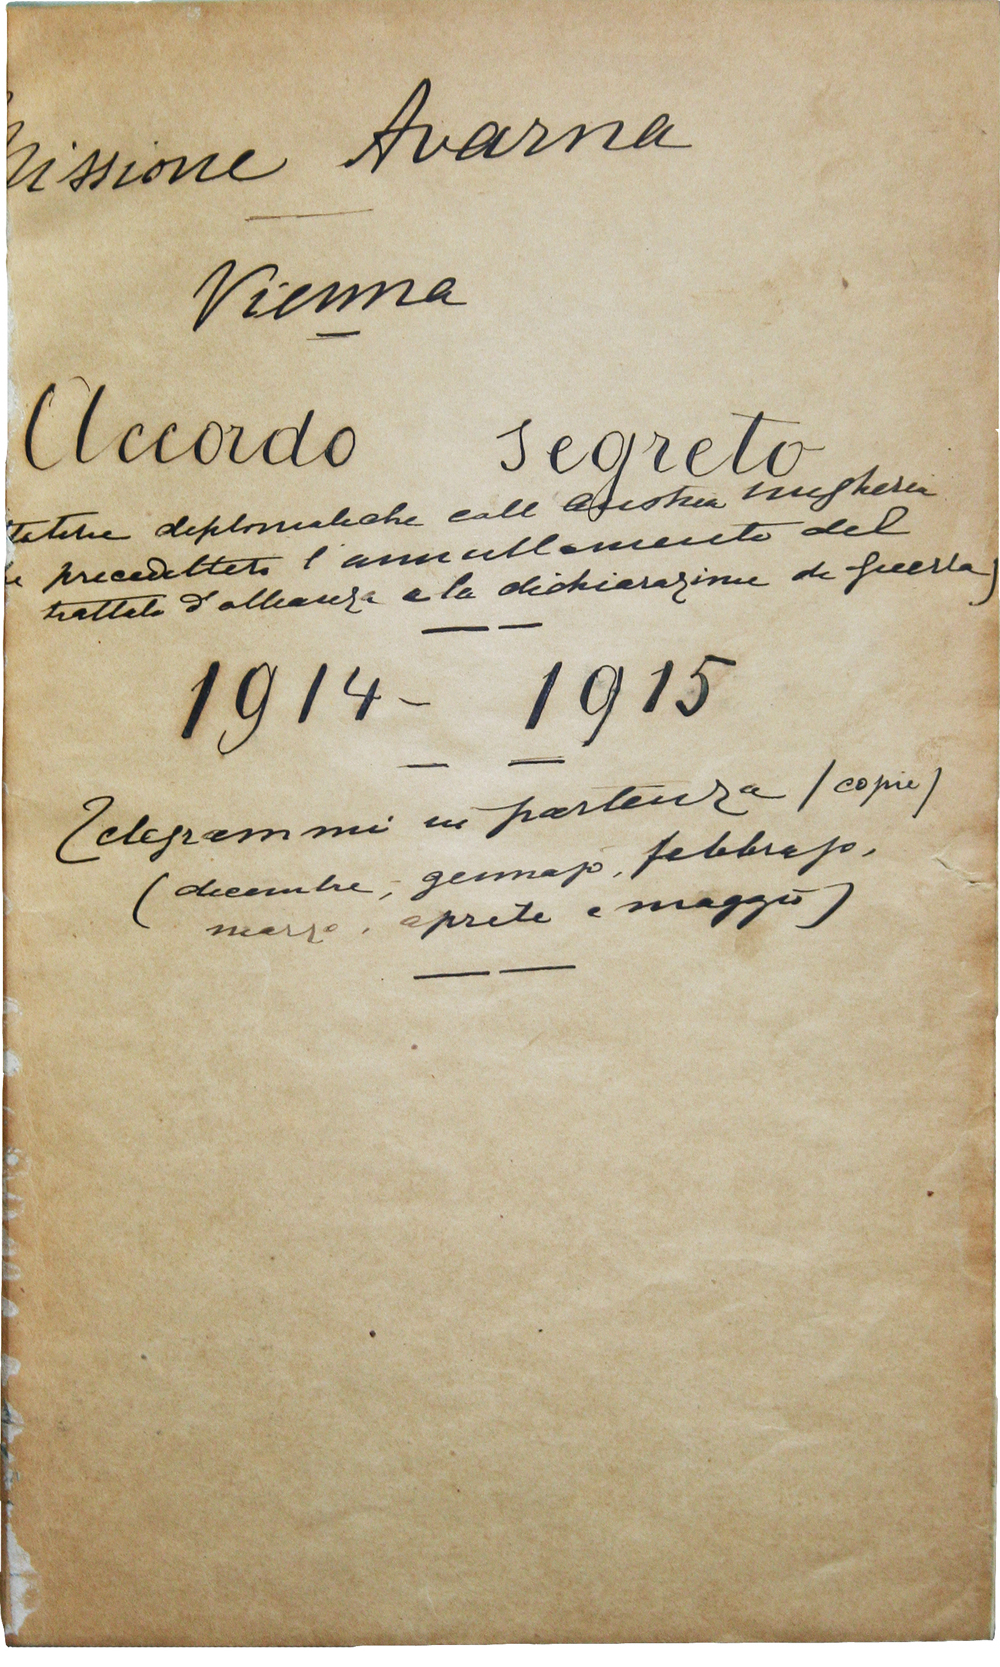 Missione Avarna
Vienna
Accordo segreto
diplomatiche coll'Austria Ungheria
precedettero l'annullamento del
trattato d'alleanza e la dichiarazione di guerra)
1914 - 1915
Telegrammi in partenza (copie)
(decembre, gennajo, febbrajo,
marzo, aprile e maggio)